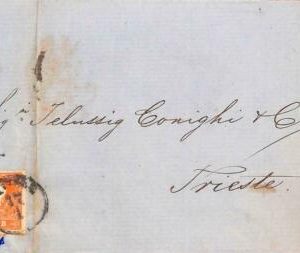 Sig.ri Jelussig Conighi & C
Trieste.